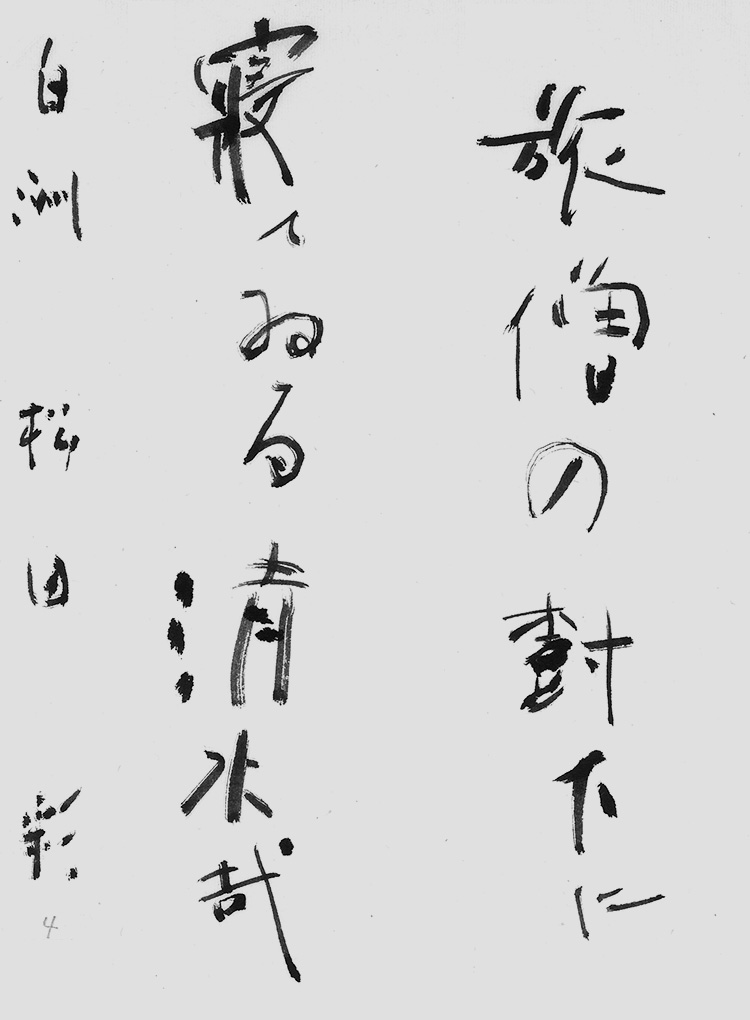 旅僧の樹下に
寝てゐる清水哉
白洲 松田 彩
4